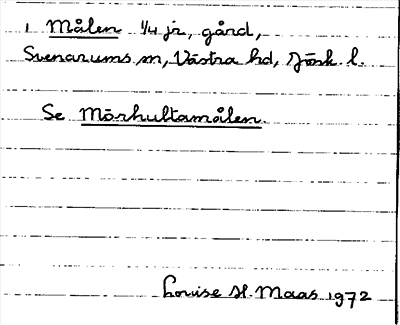 1 Målen 1/4 jr, gård,
Svenarums sn, Västra hd, Jönk. l.
Se Mörhultamålen.
Louise H. Maas 1972